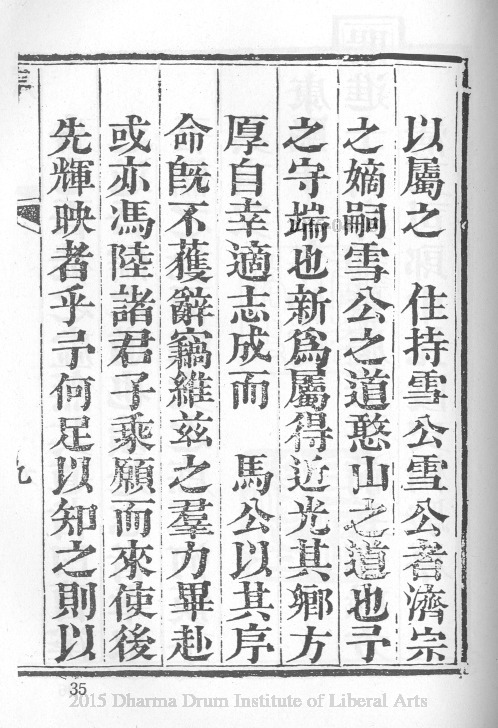 以屬之　住持雪公雪公者濟宗
之嫡嗣雪公之道憨山之道也予
之守端也新為屬得近光其鄉方
厚自幸適志成而　馬公以其序
命旣不獲辭竊維茲之羣力畢赴
或亦馮陸諸君子乘願而來使後
先輝映者乎予何足以知之則以
九
35
2015 Dharma Drum Institute of Liberal Arts